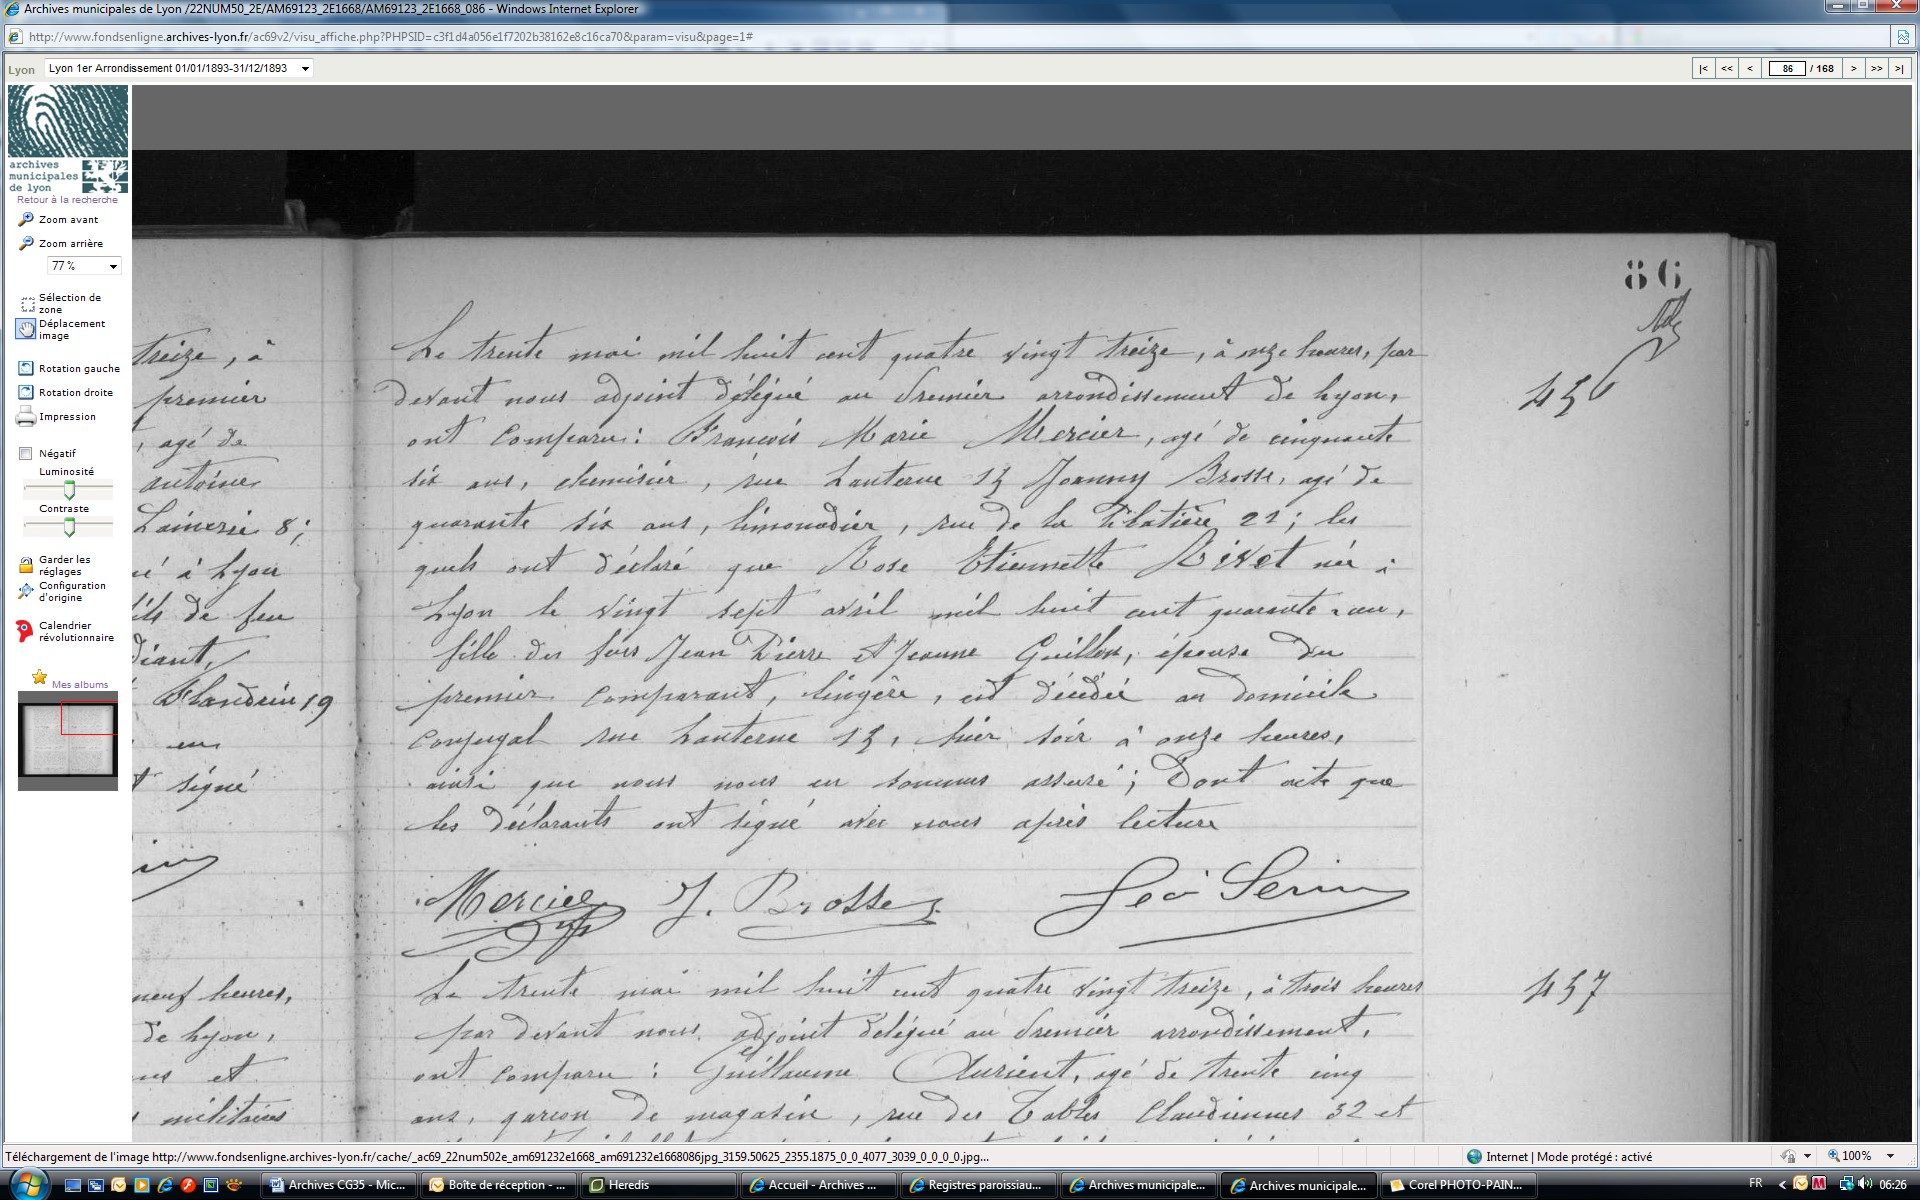 Archives municipales de Lyon /22NUM50_2E/AM69123_2E1668/AM69123_2E1668_086 - Windows Internet Explorer
http://www.fondsenligne.archives-lyon.fr/ac69v2/visu_affiche.php?PHPSID=c3f1d4a056e1f7202b38162e8c16ca70&param=visu&page=1#
Lyon
Lyon 1er Arrondissement 01/01/1893-31/12/1893
|< << < 86 / 168 > >> >|
archives
municipales
de Lyon
Retour à la recherche
Zoom avant
Zoom arrière
77 %
Sélection de
zone
Déplacement
image
Rotation gauche
Rotation droite
Impression
Négatif
Luminosité
Contraste
Garder les
réglages
Configuration
d'origine
Calendrier
révolutionnaire
Mes albums
treize, à
premier
, agé de
antoine
Lainerie 8;
né à Lyon
fils de feu
Flandrin 19
en
signé
neuf heures,
de Lyon,
et
militaires
86
Le trente mai mil huit cent quatre vingt treize, à onze heures, par
devant nous adjoint délégué au premier arrondissement de Lyon,
ont comparu: François Marie Mercier, agé de cinquante
six ans, chemisier, rue Lanterne 15 Joanny Brosse, agé de
quarante six ans, limonadier, rue de la Platière 21; les
quels ont déclaré que Rose Etiennette Rivet née à
Lyon le vingt sept avril mil huit cent quarante-un,
fille des feus Jean Pierre et Jeanne Guillon, épouse du
premier comparant, lingère, est décédée au domicile
conjugal rue Lanterne 15, hier soir à onze heures,
ainsi que nous nous en sommes assuré; Dont acte que
les déclarants ont signé avec nous après lecture
456
Mercier J. Brosse Léo Serin
Le trente mai mil huit cent quatre vingt treize, à trois heures
par devant nous adjoint délégué au premier arrondissement,
ont comparu: Guillaume Aurient, agé de trente cinq
ans, garçon de magasin, rue des Tables Claudiennes 32 et
457
Téléchargement de l'image http://www.fondsenligne.archives-lyon.fr/cache/_ac69_22num502e_am691232e1668_am691232e1668086jpg_3159.50625_2355.1875_0_0_4077_3039_0_0_0_0.jpg...
Internet | Mode protégé : activé
100%
Archives CG35 - Mic...
Boîte de réception - ...
Heredis
Accueil - Archives ...
Registres paroissiau...
Archives municipale...
Archives municipale...
Corel PHOTO-PAIN...
FR
06:26